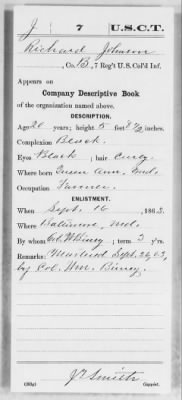 J 7 U.S.C.T.
Richard Johnson
, Co. B, 7 Reg't U.S. Col'd Inf.
Appears on
Company Descriptive Book
of the organization named above.
DESCRIPTION.
Age 20 years; height 5 feet 8 1/2 inches.
Complexion Black.
Eyes Black; hair Curly
Where born Queen Ann, Md.
Occupation Farmer.
ENLISTMENT.
When Sept. 16, 1863.
Where Baltimore, Md.
By whom Col. W Birney; term 3 y'rs.
Remarks: Mustered Sept. 26, 63,
by Col. Wm. Birney.
J. Smith
Copyist.